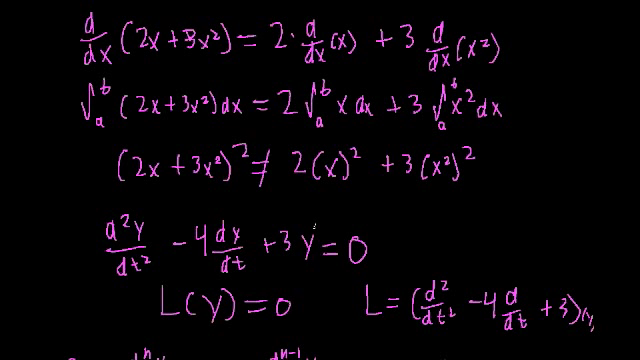 d/dx (2x + 3x²) = 2 · d/dx (x) + 3 d/dx (x²)
∫ₐᵇ (2x + 3x²) dx = 2 ∫ₐᵇ x dx + 3 ∫ₐᵇ x² dx
(2x + 3x²)² ≠ 2(x)² + 3(x²)²
d²y/dt² - 4 dy/dt + 3y = 0
L(y) = 0 L = (d²/dt² - 4 d/dt + 3)(y)